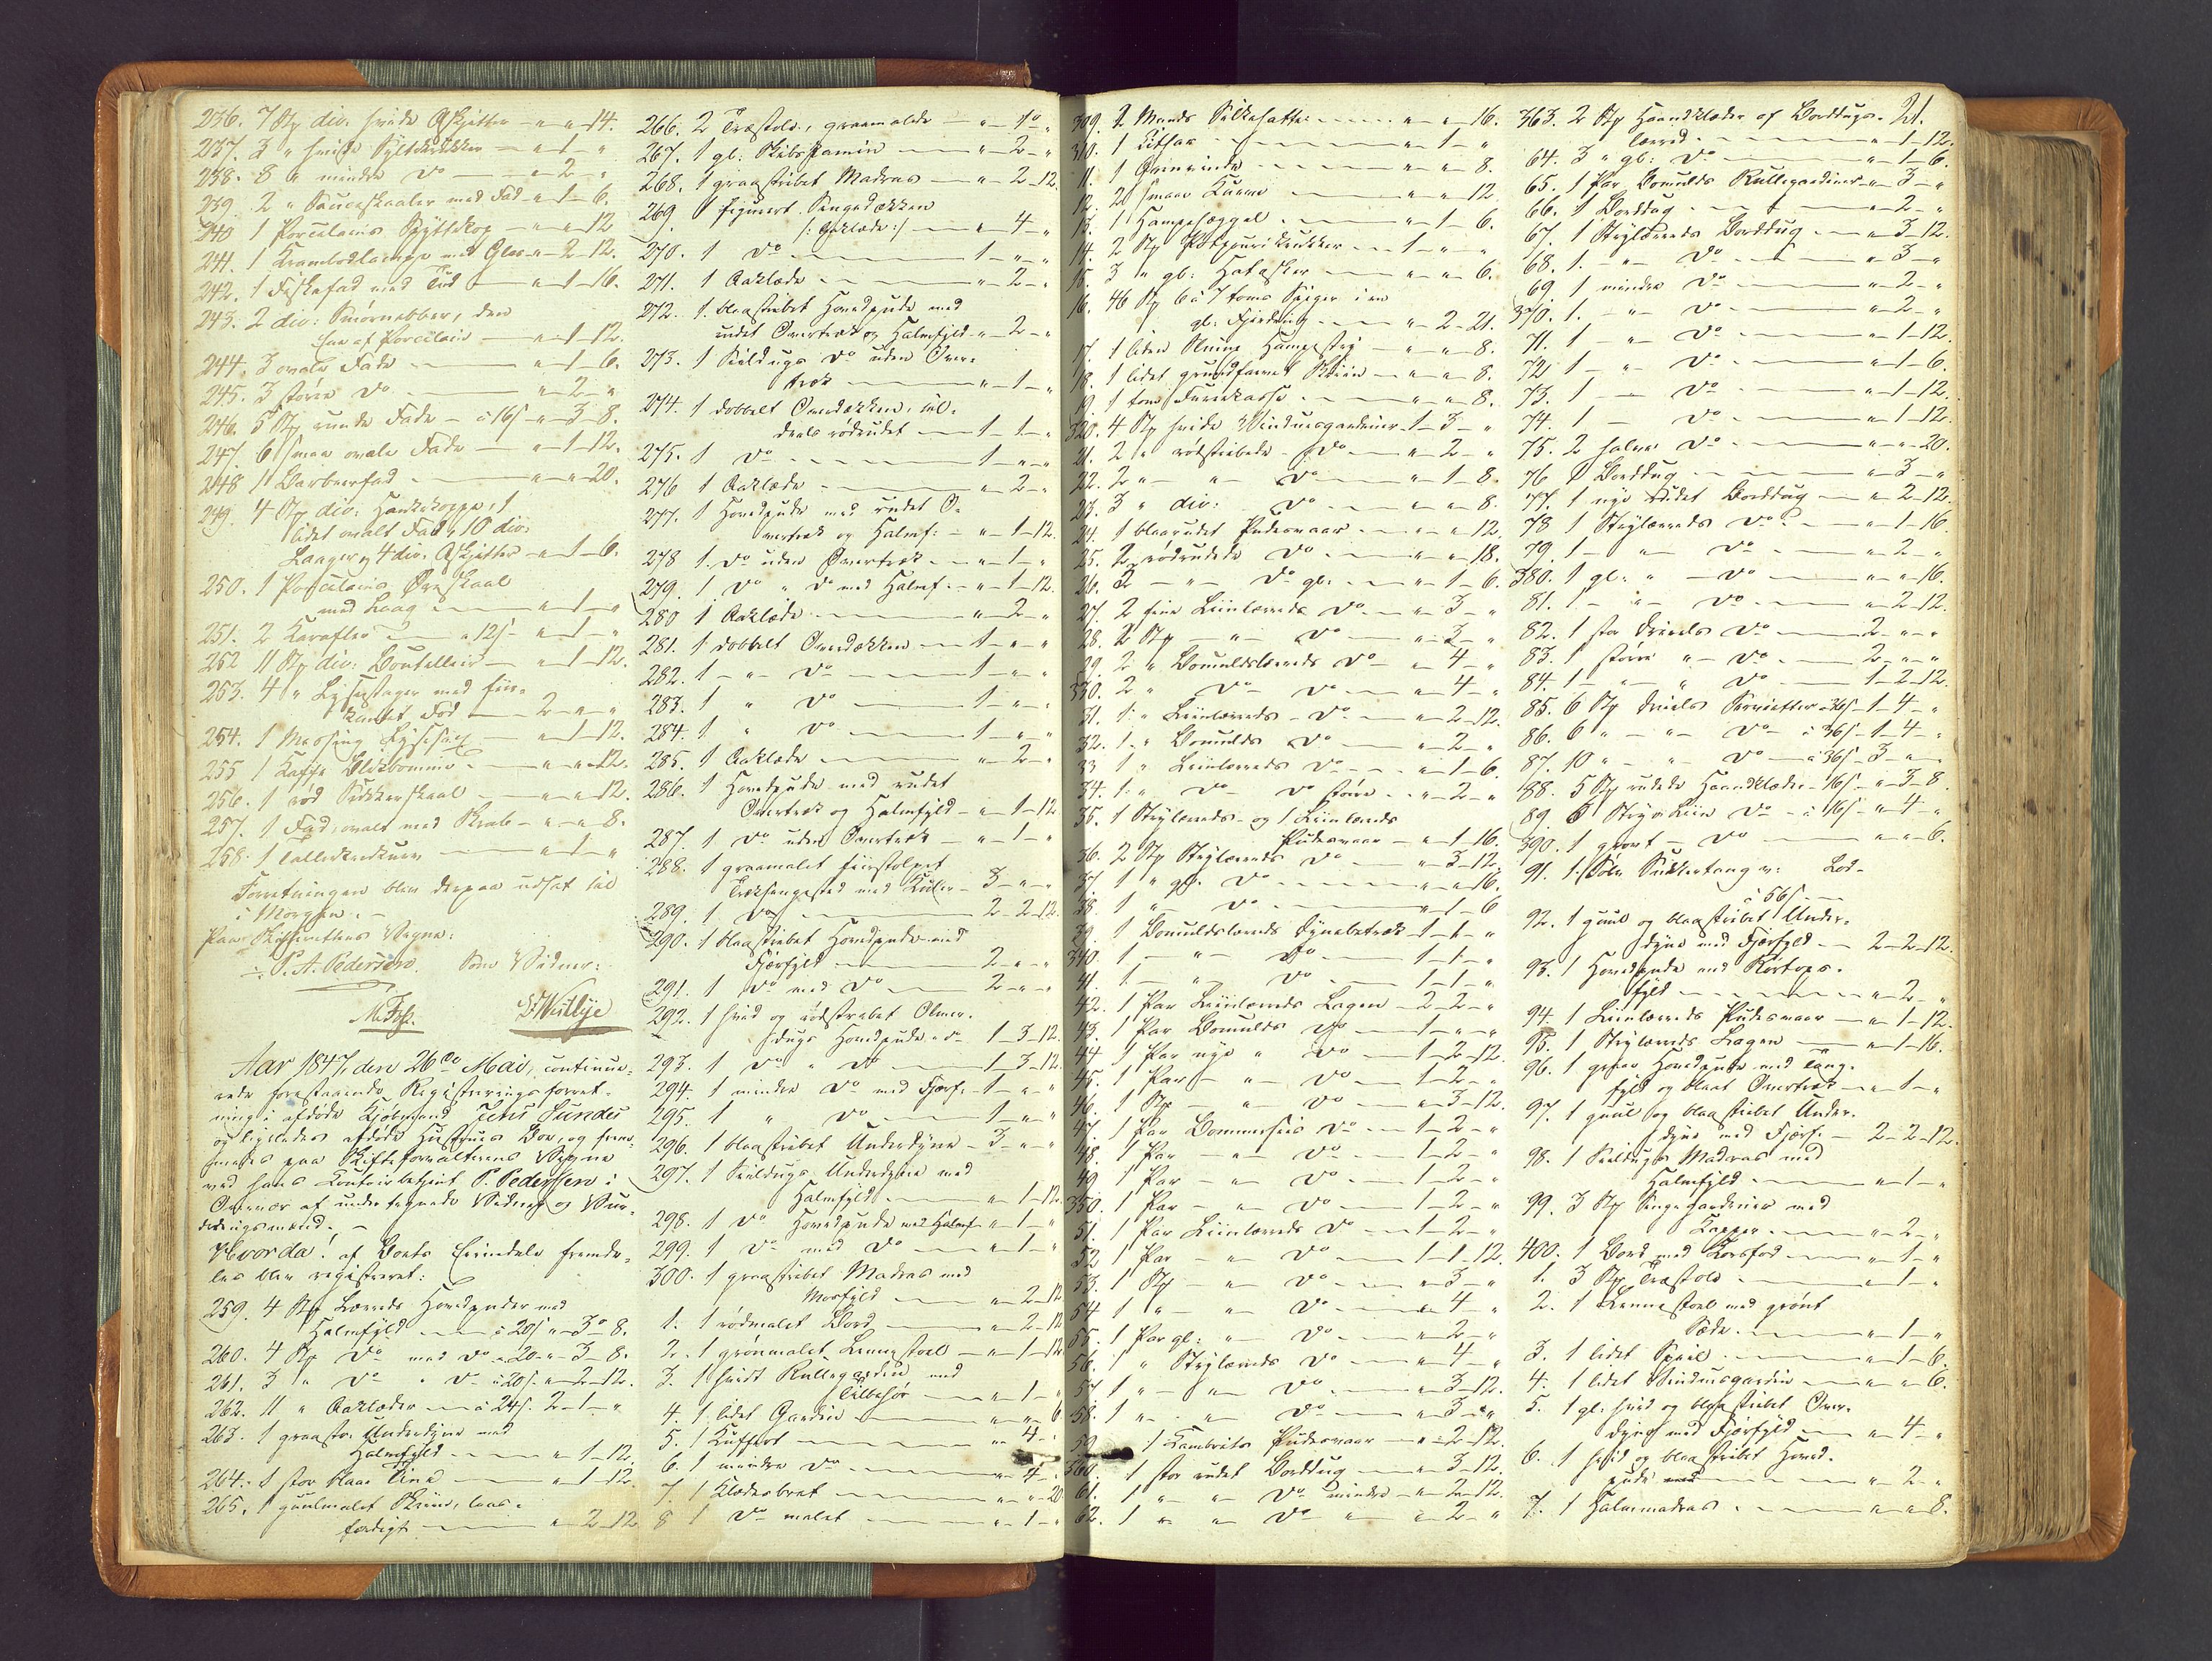 236. 7 Stk div. hvide Askjetter — " — " — 14.
237. 3 " hvide Syltekrukker — " — 1 — "
238. 8 " mindre Do — " — 2 — "
239. 2 " Sauceskaaler med Fad — " — 1 — 6.
240 1 Porcelains Spyttekop — " — " — 12
241. 1 Krambodlampe med Glas — " — 2 — 12.
242. 1 Fiskefad med Tud — " — 1 — 16.
243. 2 div: Smørnebber, den
ene af Porcelain — " — 1 — 12.
244. 3 ovale Fade — " — 1 — 6.
245. 3 større Do — " — 2 — "
246. 5 Stk runde Fade — à 16 s — " — 3 — 8.
247 6 smaa ovale Fade — " — 1 — 12.
248 1 Barbeerfad — " — " — 20.
249. 4 Stk div: Hankekopper, 1
lidet ovalt Fad, 10 div:
250. 1 Porcelains Øreskaal
med Laag — " — 1 — "
251. 2 Karafler — à 12 s — " — 1 — "
252 11 Stk div: Bouteller — " — 1 — 12.
253. 4 " Lysestager med fiir-
kantet Fod — 2 — " — "
254. 1 Messing Lysesax — " — 1 — 12.
255 1 Kaffe Blikbomme — " — " — 12.
256. 1 rød Sukkerskaal — " — " — 12.
257. 1 Fad, ovalt med — " — " — 8.
258. 1 Tallerkenkurv — " — 1 — "
Forretningen blev derpaa udsat til
i Morgen. —
Paa Skifterettens Vegne:
P. A. Pedersen. Som Vidner:
Aar 1847, den 26de Mai, continue-
rede forestaaende Registreringsforret-
ning i afdøde Kjøbmand Jens Lundes
og ligeledes afdøde Hustrues Boe, og frem-
mødes paa Skifteforvalterens Vegne
ved hans Contoirbetjent P. Pedersen i
Overvær af undertegnede Vidner og Vur-
deringsmænd. —
Hvorda! af Boets Eiendele fremde-
les blev registreret:
259. 4 Stk Lærreds Hovedpuder med
Halmfyld — à 20 s — " — 3 — 8.
260. 4 Stk Do med Do — à 20 — " — 3 — 8.
261. 3 " Do " Do à 20 s — " — 2 — 12.
262. 11 " Aaklæder — à 24 s. 2 — 1 — "
263. 1 graastr: Underdyne med
Halmfyld — " — 1 — 12.
264. 1 stor blaa Tine — " — 1 — 12.
265. 1 guulmalet Skriin, laas-
færdigt — " — 2 — 12
266. 2 Træstole, graamalede — " — 1 — "
267. 1 gl: Skibs — " — 2 — "
268. 1 graastribet Madras — " — 2 — 12.
269. 1 figuret Sengedækken
/: Aaklæde :/ — " — 4 — "
270. 1 Do — 1 — " — "
271. 1 Aaklæde — " — 2 — "
272. 1 blaastribet Hovedpude med
rudet Overtræk og Halmfyld — " — 2 — "
273. 1 Seildugs Do uden Over-
træk — " — 1 — "
274. 1 dobbelt Overdækken, til-
deels rødrudet — 1 — 1 — "
275. 1 Do — 1 — " — "
276 1 Aaklæde — " — 2 — "
277. 1 Hovedpude med rudet O-
vertræk og Halmf: — " — 1 — 12.
278 1 Do uden Overtræk — " — 1 — "
279. 1 Do " Do med Halmf. — " — 1 — 12.
280 1 Aaklæde — " — 2 — "
281. 1 dobbelt Overdækken — 1 — " — "
282. 1 — " — Do — 1 — " — "
283. 1 " Do — 1 — " — "
284. 1 " Do — 1 — " — "
285. 1 Aaklæde — " — 2 — "
286. 1 Hovedpude med rudet
Overtræk og Halmfyld — " — 1 — 12
287. 1 Do uden Overtræk — " — 1 — "
288. 1 graamalet fiirstolpet
Træksengested med — 3 — " — "
289. 1 Do — 2 — 2 — 12
290. 1 blaastribet Hovedpude med
Fjærfyld — 2 — " — "
291. 1 Do med Do — 2 — " — "
292. 1 hvid og rødstribet Olmer-
dugs Hovedpude — 1 — 3 — 12.
293. 1 Do " Do — 1 — 3 — 12.
294. 1 mindre Do med Fjærf. — 1 — " — "
295. 1 " Do — 1 — " — "
296. 1 blaastribet Underdyne — 3 — " — "
297. 1 Seildugs Underdyne med
Halmfyld — " — 1 — 12.
298. 1 Do Hovedpude med Halmf. — " — 1 — "
299. 1 Do med Do — " — 1 — "
300. 1 graastribet Madras med
Mosfyld — " — 2 — 12
1. 1 rødmalet Bord — " — 2 — 12
2. 1 grønmalet Lænestoel — " — 1 — 12
3. 1 hvidt Rullegardin med
Tilbehør — " — 1 — "
4. 1 lidet Gardin — " — " — 6
5. 1 Kuffert — " — 4 — "
6. 1 mindre Do — " — 4 — "
7. 1 Klædebret — " — " — 20
8 1 Do malet — " — 1 — "
309. 2 Mands Silkehatte — " — " — 16.
310. 1 Zithar — " — 1 — "
11. 1 — " — " — 8.
12. 2 smaae Kurve — " — " — 12
13. 1 — " — 1 — 6.
14. 2 Stk Potpourikrukker — 1 — " — "
15. 3 " gl: — " — " — 6.
16. 46 Stk 6 à 7 toms Spiger i en
gl: Fjerding — " — 2 — 21.
17. 1 liden — " — " — 8.
18. 1 lidet grundfarvet Skriin — " — " — 8.
19 1 tom — " — " — 8.
320. 4 Stk hvide Vinduesgardiner — 1 — 3 — "
21. 2 " rødstribede Do — " — 2 — "
22. 2 " — " — Do — " — 1 — 8.
23. 3 " div: Do — " — " — 8.
24. 1 blaarudet Pudevaar — " — " — 12.
25. 2 rødrudede Do — " — " — 18.
26. 2 — " — Do gl: — " — 1 — 6.
27. 2 fine Liinlærreds Do — " — 3 — "
28. 2 Stk — " — Do — " — 3 — "
29. 2 " Bomuldslærreds Do — " — 4 — "
330. 2 " Do Do — " — 4 — "
31. 1 " Liinlærreds Do — " — 2 — 12.
32. 1 " Bomulds Do — " — 2 — "
33 1 " Liinlærreds Do — " — 1 — 6.
34. 1 " Do Do større — " — 2 — "
35. 1 Strylærreds- og 1 Liinlærreds
Pudevaar — " — 1 — 16.
36. 2 Stk Strylærreds Do — " — 3 — 12.
37. 1 " gl: Do — " — " — 16.
38. 1 " — Do — " — 1 — 6
39. 1 Bomuldslærreds Dynebetræk — 1 — 1 — "
340. 1 — " — Do — 1 — 1 — "
41. 1 — " — Do — 1 — 1 — "
42. 1 Par Liinlærreds Lagen — 2 — 2 — "
43. 1 Par Bomulds Do — 1 — " — "
44 1 Par nye " Do — 1 — 2 — 12.
45. 1 Par — " — Do — 1 — 2 — "
46. 1 Stk — " — Do — " — 3 — 12.
47. 1 Par Do — 1 — 2 — "
48. 1 Par — " — Do — 1 — 2 — "
49. 1 Par — " — Do — 1 — 2 — "
350. 1 Par — " — Do — 1 — 2 — "
51. 1 Par Liinlærreds Do — 1 — 2 — "
52 1 Par — " — Do — 1 — 1 — 12.
53. 1 Stk — " — Do — " — 3 — "
54 1 " — " — Do — " — 4 — "
55. 1 Par gl: " — Do — " — 2 — "
56. 1 " Strylærreds Do — " — 4 — "
57 1 " — " — Do — " — 3 — 12.
58. 1 " — " — Do — " — 3 — "
59. 1 Kambriks Pudevaar — " — 2 — 12.
360. 1 stor rudet Borddug — " — 3 — 12.
61. 1 " — " — Do mindre — " — 2 — 12.
62. 1 " — " — Do — " — 2 — "
21.
363. 2 Stk Haandklæder af Borddugs-
lærred — " — 1 — 12.
64. 3 " gl: Do — " — 1 — 6.
65. 1 Par Bomulds Rullegardiner — " — 3 — "
66. 1 Borddug — " — 2 — "
67. 1 Strylærreds Borddug — " — 3 — 12.
68. 1 — " — Do — " — 3 — "
69 1 mindre Do — " — 2 — "
370. 1 — " — Do — " — 2 — "
71. 1 — " — Do — " — 1 — 12.
72. 1 — " — Do — " — 1 — 6.
73. 1 — Do — " — 1 — 12.
74. 1 — Do — " — 1 — 12.
75. 2 halve Do — " — " — 20.
76 1 Borddug — " — 3 — "
77. 1 nye rudet Borddug — " — 2 — 12.
78 1 Strylærreds Do — " — 1 — 16.
79. 1 — " — Do — " — 2 — "
380. 1 gl: " — Do — " — " — 16.
81. 1 — " — Do — " — 2 — 12.
82. 1 stor Dreiels Do — 2 — " — "
83. 1 større " — Do — 2 — " — "
84. 1 — " — " Do — 1 — 2 — 12.
85. 6 Stk Dreiels Servietter à 36 s — 1 — 4 — "
86. 6 " — " — Do — à 36 s — 1 — 4 — "
87. 10 " — " — Do — à 36 s — 3 — " — "
88. 5 Stk rudede Haandklæder — 16 s — " — 3 — 8.
89 6 Stry & Liin Do — à 16 s — " — 4 — "
390. 1 grovt — Do — " — " — 6.
91. 1 Sølv Sukkertang v: Lod —
à 56 s —
92. 1 guul og blaastribet Under-
dyne med Fjærfyld — 2 — 2 — 12.
93. 1 Hovedpude med
fyld — " — 2 — "
94. 1 Liinlærreds Pudevaar — " — 1 — 12.
95. 1 Strylærreds Lagen — " — 1 — 16.
96. 1 Hovedpude med Tang-
fyld og blaat Overtræk — " — 1 — "
97. 1 guul og blaastribet Under-
dyne med Fjærf. — 2 — 2 — 12.
98. 1 Seildugs Madras med
Halmfyld — " — 1 — "
99. 3 Stk Sengegardiner med
Kapper — " — 2 — "
400. 1 Bord med Korsfod — " — 1 — "
1. 3 Stk Træstole — " — 1 — "
2. 1 Lænestoel med grønt
Sæde — " — 1 — "
3. 1 lidet Speil — " — 1 — 6.
4. 1 lidet Vinduesgardin — " — " — 6.
5. 1 gl: hvid og blaastribet Over-
dyne med Fjærfyld — " — 4 — "
6. 1 hvid og blaastribet Hoved-
pude — " — 2 — "
7. 1 Halmmadras — " — " — 8.